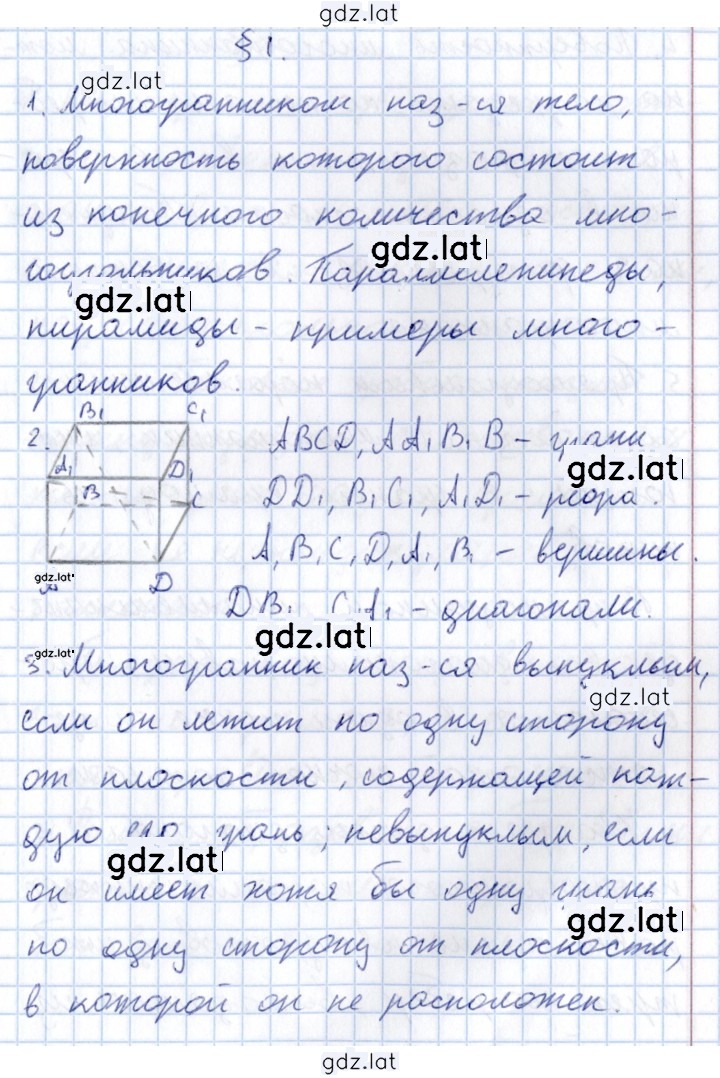 gdz.lat
§ 1.
gdz.lat
1. Многогранником наз-ся тело,
поверхность которого состоит
из конечного количества мно-
gdz.lat
гоугольников. Параллелепипеды,
gdz.lat
пирамиды – примеры много-
гранников.
B₁ C₁
2. ABCD, AA₁B₁B – грани
A₁ D₁
gdz.lat
B C DD₁, B₁C₁, A₁D₁ – ребра.
A, B, C, D, A₁, B₁ – вершины.
gdz.lat
D
DB₁, CA₁ – диагонали.
gdz.lat
3. Многогранник наз-ся выпуклым,
gdz.lat
если он лежит по одну сторону
от плоскости, содержащей каж-
дую его грань; невыпуклым, если
gdz.lat
он имеет хотя бы одну грань
gdz.lat
по одну сторону от плоскости,
в которой он не расположен.
gdz.lat